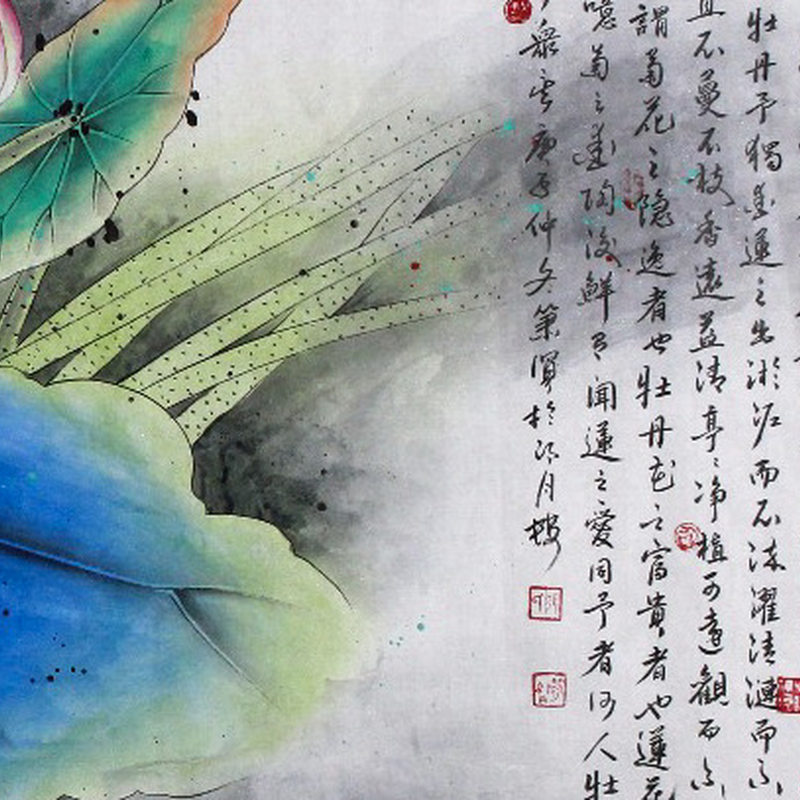 牡丹予獨愛蓮之出淤泥而不染濯清漣而不
且不蔓不枝香遠益清亭〻净植可遠觀而不
謂菊花之隐逸者也牡丹花之富貴者也蓮花
噫菊之愛陶後鮮有聞蓮之愛同予者何人牡
衆矣庚子仲冬策賢於月樓